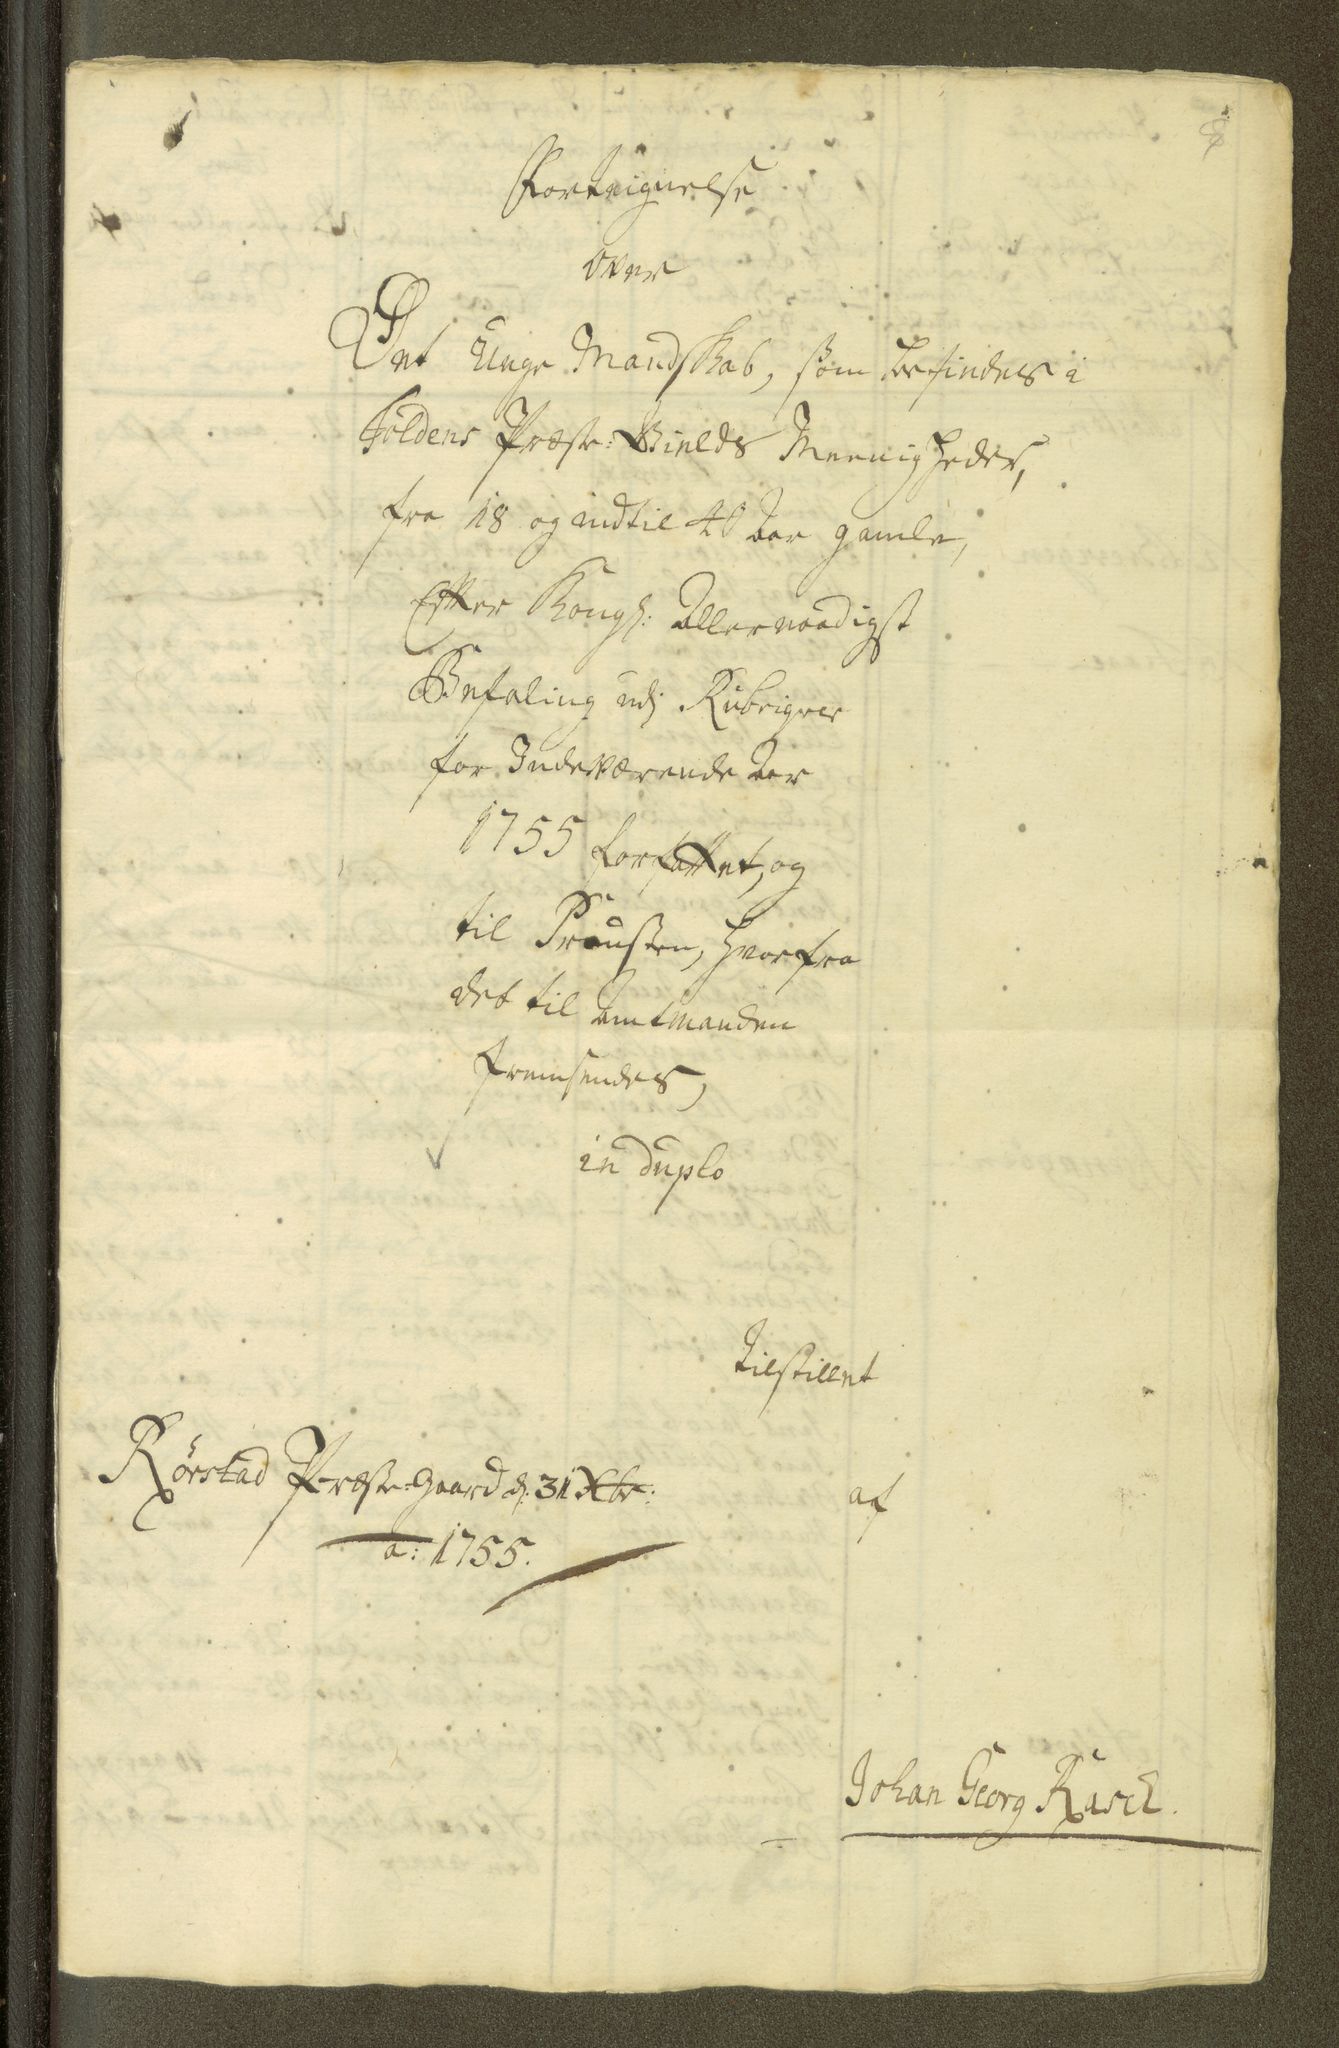 Forteignelse
over
Det Unge Mandskab, som befindes i
Foldens Præste-Gields Meenigheder,
fra 18 og indtil 40 Aar gamle,
Efter Kongl: Allernaadigst
Befaling udj Rubriqver
for Indeværende Aar
1755 forfattet, og
til Prousten, hvorfra
det til Amtmanden
fremsendes,
in duplo
tilstillet
Rørstad Præste-Gaard d: 31 Xbr:
a: 1755.
af
Johan Georg Rasch.